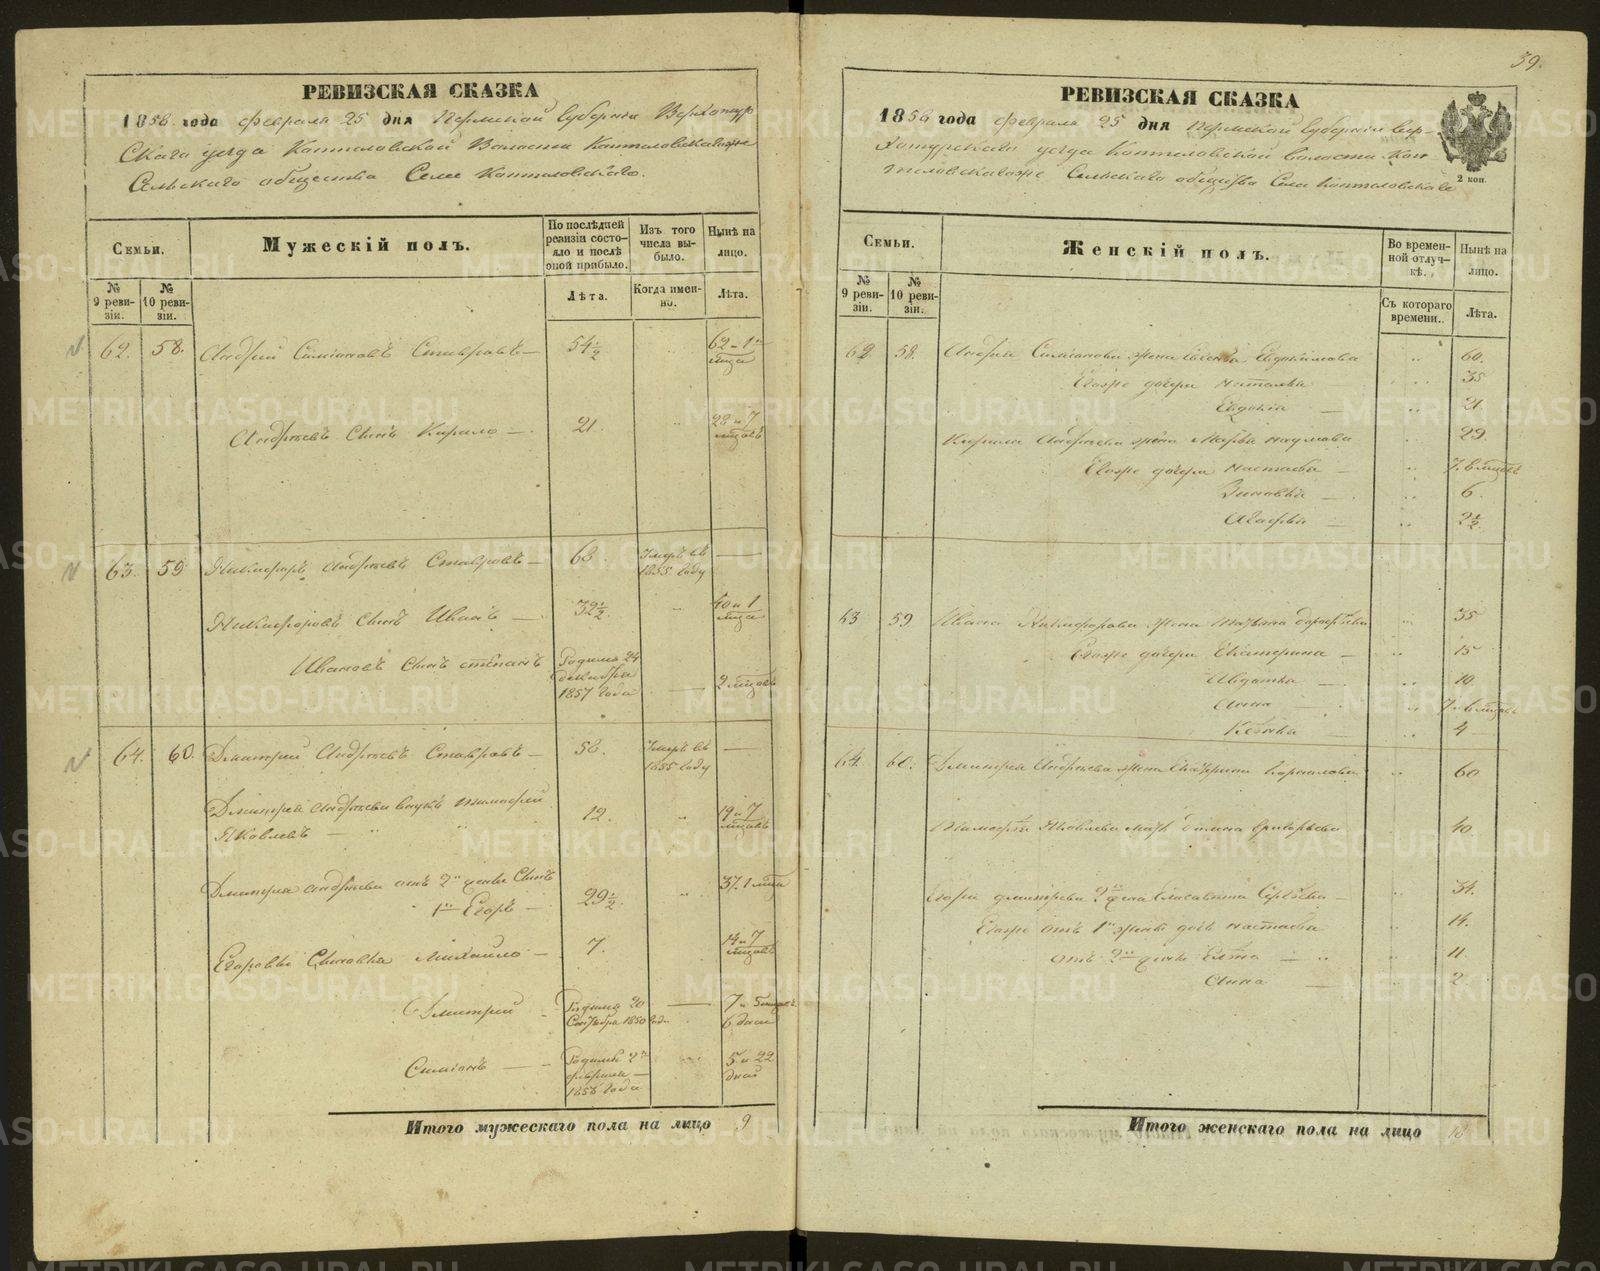 39.
РЕВИЗСКАЯ СКАЗКА
1858 года февраля 25 дня Пермской Губернiи Верхотур
скаго уезда Коптеловской Волости Коптеловскагоже
Сельскаго общества Села Коптеловскаго.
Семьи.
Мужескій полъ.
По послѣдней ревизіи состояло и послѣ оной прибыло.
Изъ того числа выбыло.
Нынѣ на лицо.
№ 9 ревизіи.
№ 10 ревизіи.
Лѣта.
Когда именно.
Лѣта.
62. 58. Андрей Симіоновъ Ставровъ — 54½ 62 - 1
Андреевъ Сынъ Кирило — 21 28 и 7
63. 59 Никифоръ Андреевъ Ставровъ — 68 Умеръ въ 1855 году —
Никифоровъ Сынъ Иванъ — 32½ 40 и 1
Ивановъ Сынъ Степанъ Родился 24 декабря 1857 года — 2
64. 60. Дмитрий Андреевъ Ставровъ — 58. Умеръ въ 1855 году —
Дмитрея Андреева внукъ Тимофей
Яковлевъ — 12. 19 и 7
Дмитрея Андреева отъ 2й жены Сынъ
1й Егоръ — 29½ 37. 1
Егоровы Сыновья Михайло — 7. 14 и 7
Дмитрий Родился 20 1850 года — 7 и 5 6 дней
Симіонъ — Родился 2го февраля 1858 года 22 дней
Итого мужескаго пола на лицо 9
РЕВИЗСКАЯ СКАЗКА
1858 года февраля 25 дня Пермской Губернiи Вер-
хотурскаго уезда Коптеловской волости Коп
теловскагоже Сельскаго общества Села Коптеловскаго
2 коп.
Семьи.
Женскій полъ.
Во временной отлучкѣ.
Нынѣ на лицо.
№ 9 ревизіи.
№ 10 ревизіи.
Съ котораго времени.
Лѣта.
62 58. Андрея Симіонова жена Евдокимова 60.
Егоже дочери Наталья 35
Евдокія — 21.
Кирила Андреева жена Марья Наумова 29.
Егоже дочери Настасья — 7.
Зиновья — 6.
Агафья — 2½
63 59 Ивана Никифорова жена 35
Егоже дочери Екатерина — 15
Авдотья — 10
Анна — 7
4
64. 60. Дмитрея Андреева жена Корнилова 60
Тимофея Яковлева мать Григорьева 40.
Егора Дмитрева 2я жена Елисавета Сергеева — 34.
Егоже отъ 1й жены дочь Настасья 14.
отъ 2й жены — 11
Анна — 2
Итого женскаго пола на лицо 18
METRIKI.GASO-URAL.RU